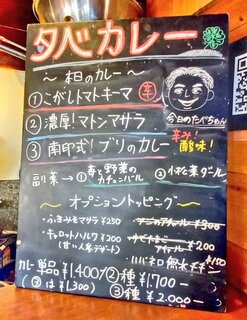 夕べカレー
～本日のカレー～
①こがしトマトキーマ 辛
②濃厚!マトンマサラ
③南印式!ブリのカレー
今日のたべちゃん
辛み!
酸味!
副菜→①苺と野菜のカチュンバル ②小松菜ダール
～オプショントッピング～
・ふきみそマサラ ¥250
・キャロットハルワ ¥200
(甘い人参デザート)
アチャール ¥200
カレー単品 ¥1,400
(②は¥1,300)
②種 ¥1,700-
③種 ¥2,000-